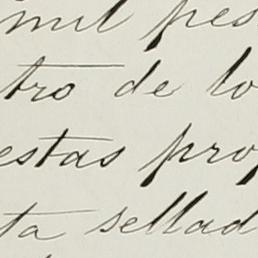 mil pes
tro de lo
estas prop
ta sellad